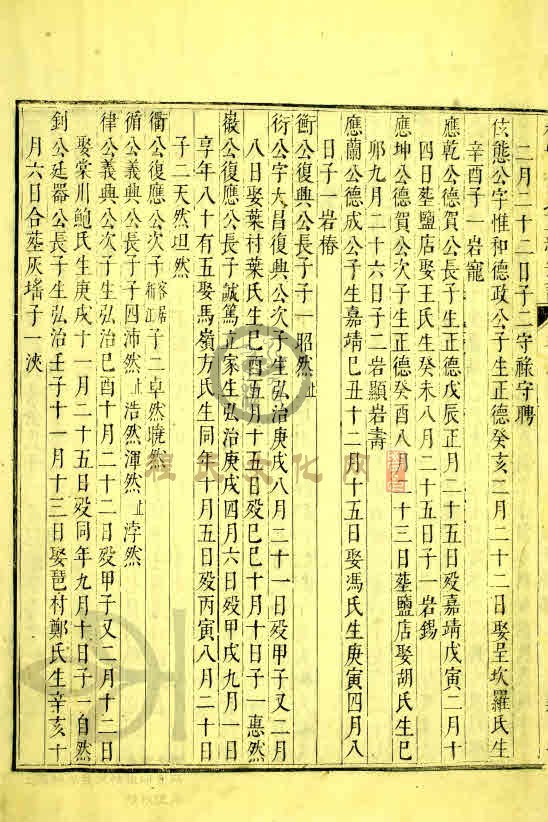 二月二十二日子二守祿守聘
俟態公字惟和德政公子生正德癸亥二月二十二日娶呈坎羅氏生
辛酉子一岩寵
應乾公德賀公長子生正德戊辰正月二十五日殁嘉靖戊寅二月十
四日塟鹽店娶王氏生癸未八月二十五日子一岩錫
應坤公德賀公次子生正德癸酉八月二十三日塟鹽店娶胡氏生巳
卯九月二十六日子二岩顯岩壽
應蘭公德成公子生嘉靖己丑十二月十五日娶馮氏生庚寅四月八
日子一岩椿
衝公復興公長子子一昭然止
衍公字大昌復興公次子生弘治庚戌八月二十一日殁甲子又二月
八日娶葉村葉氏生巳酉五月十五日殁巳巳十月十日子一惠然
嶽公復應公長子誠篤立家生弘治庚戌四月六日殁甲戌九月一日
享年八十有五娶馬嶺方氏生同年十月五日殁丙寅八月二十日
子二天然坦然
衢公復應公次子客居衢江子二卓然曉然
循公義興公長子子四沛然止浩然渾然止浡然
律公義興公次子生弘治巳酉十月二十二日殁甲子又二月十二日
娶棠川鮑氏生庚戌十一月二十五日殁同年九月十日子一自然
釗公廷器公長子生弘治壬子十一月十三日娶琶村鄭氏生辛亥十
月六日合塟灰瑤子一浹
程氏文化网